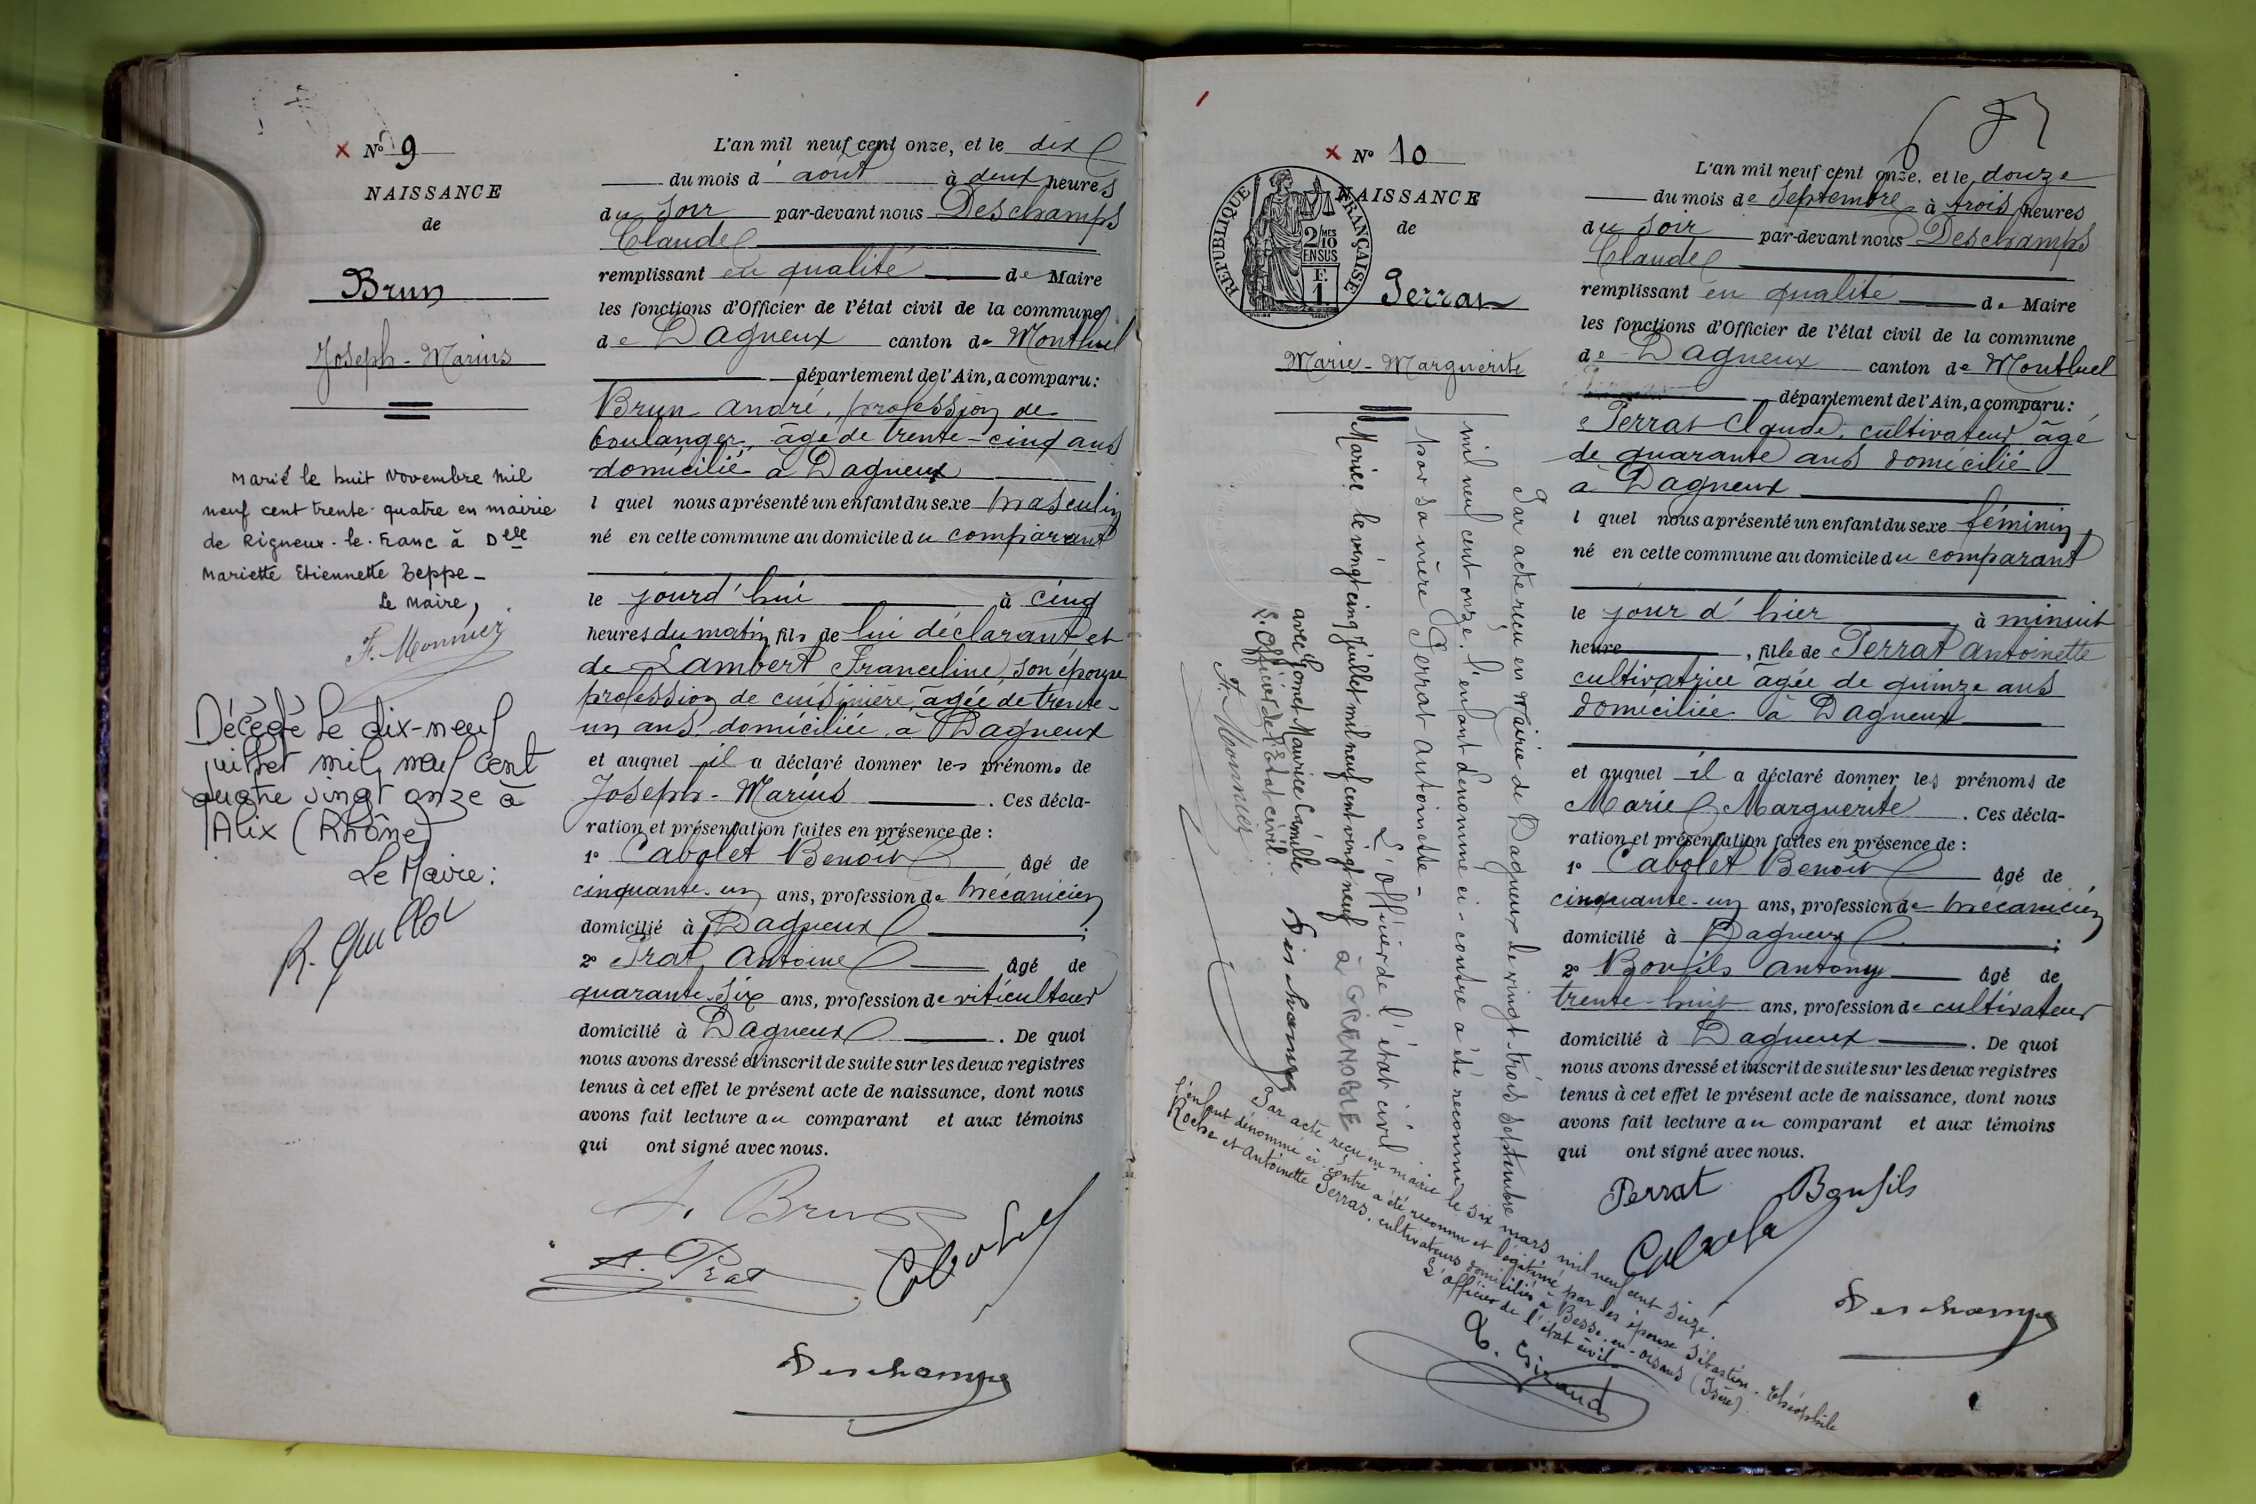 × N° 9
NAISSANCE
de
Brun
Joseph-Marius
Marié le huit Novembre mil
neuf cent trente-quatre en mairie
de Rigneux-le-Franc à Delle
Mariette Etiennette Teppe-
Le Maire,
F. Monnier
Décédé le dix-neuf
juillet mil neuf cent
quatre vingt onze à
Alix (Rhône)
Le Maire:
R. Guillot
L'an mil neuf cent onze, et le dix
du mois d'août à deux heures
du soir par-devant nous Deschamps
Claude
remplissant en qualité de Maire
les fonctions d'Officier de l'état civil de la commune
de Dagneux canton de Montluel
département de l'Ain, a comparu:
Brun André, profession de
boulanger, âgé de trente-cinq ans
domicilié à Dagneux
l quel nous a présenté un enfant du sexe masculin
né en cette commune au domicile du comparant
le jourd'hui à cinq
heures du matin, fils de lui déclarant et
de Lambert Franceline, son épouse
profession de cuisinière, âgée de trente-
un ans domiciliée à Dagneux
et auquel il a déclaré donner les prénoms de
Joseph-Marius. Ces décla-
ration et présentation faites en présence de:
1° Cabolet Benoît âgé de
cinquante-un ans, profession de mécanicien
domicilié à Dagneux;
2° Prat, Antoine âgé de
quarante-six ans, profession de viticulteur
domicilié à Dagneux. De quoi
nous avons dressé et inscrit de suite sur les deux registres
tenus à cet effet le présent acte de naissance, dont nous
avons fait lecture au comparant et aux témoins
qui ont signé avec nous.
A. Brun
A. Prat
Cabolet
Deschamps
× N° 10
NAISSANCE
de
RÉPUBLIQUE FRANÇAISE
2/10MES
EN SUS
F.
1
Perrat
Marie-Marguerite
Par acte reçu en Mairie de Dagneux le vingt-trois septembre
mil neuf cent onze, l'enfant dénommé ci-contre a été reconnu
par sa mère Perrat Antoinette-
L'officier de l'état civil
Deschamps
Mariée le vingt cinq Juillet mil neuf cent vingt neuf à GRENOBLE
avec Maurice Camille
L'Officier de l'Etat civil:
F. Monnier
Par acte reçu en mairie le six mars mil neuf cent seize.
l'enfant dénommé ci-contre a été reconnu et légitimé par les époux Sébastien-Théophile
Roche et Antoinette Perrat, cultivateurs domiciliés à Besse-en-Oisans (Isère).
L'officier de l'état civil
Giraud
L'an mil neuf cent onze, et le douze
du mois de Septembre à trois heures
du soir par-devant nous Deschamps
Claude
remplissant en qualité de Maire
les fonctions d'Officier de l'état civil de la commune
de Dagneux canton de Montluel
département de l'Ain, a comparu:
Perrat Claude, cultivateur âgé
de quarante ans domicilié
à Dagneux
l quel nous a présenté un enfant du sexe féminin,
né en cette commune au domicile du comparant
le jour d'hier à minuit
heure, fille de Perrat Antoinette
cultivatrice âgée de quinze ans
domiciliée à Dagneux
et auquel il a déclaré donner les prénoms de
Marie Marguerite. Ces décla-
ration et présentation faites en présence de:
1° Cabolet Benoît âgé de
cinquante-un ans, profession de mécanicien
domicilié à Dagneux;
2° Bonfils Antony âgé de
trente-huit ans, profession de cultivateur
domicilié à Dagneux. De quoi
nous avons dressé et inscrit de suite sur les deux registres
tenus à cet effet le présent acte de naissance, dont nous
avons fait lecture au comparant et aux témoins
qui ont signé avec nous.
Perrat Bonfils
Cabolet
Deschamps